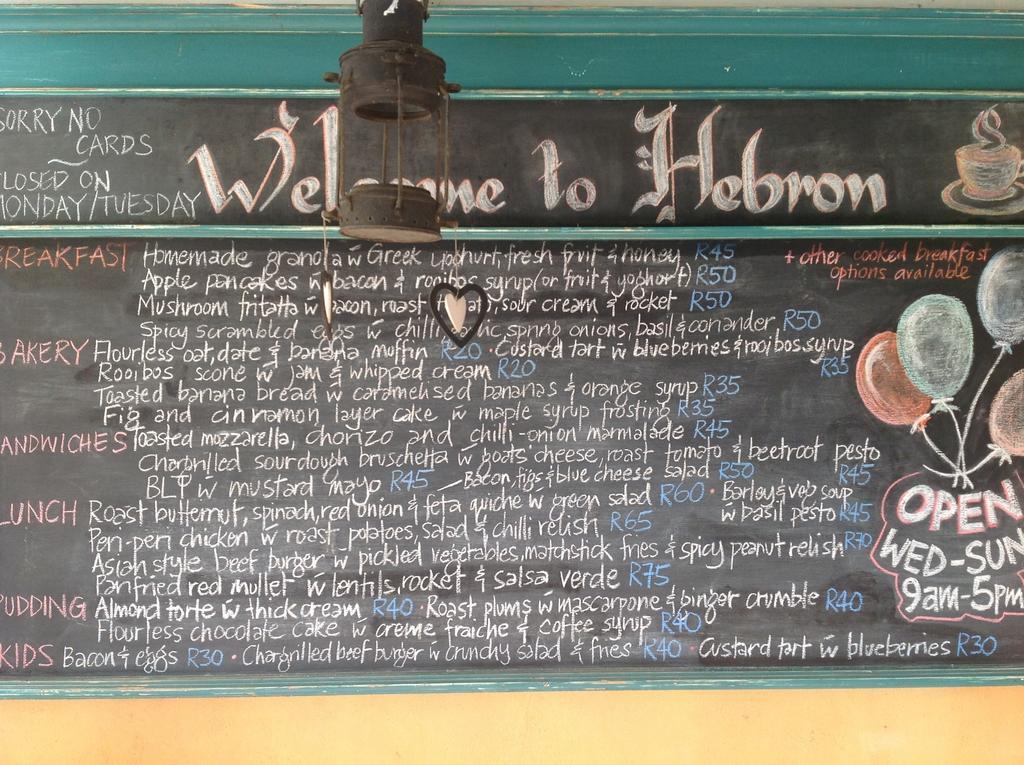 SORRY NO
CARDS
CLOSED ON
MONDAY/TUESDAY
Welcome to Hebron
BREAKFAST Homemade granola w Greek yoghurt, fresh fruit & honey R45
+ other cooked breakfast
options available
Apple pancakes w bacon & rooibos syrup (or fruit & yoghurt) R50
Mushroom fritatta w bacon, roast sour cream & rocket R50
Spicy scrambled eggs w chilli spring onions, basil & coriander R50
BAKERY Flourless oat, date & banana muffin R20 · Custard tart w blueberries & rooibos syrup
R35
Rooibos scone w jam & whipped cream R20
Toasted banana bread w caramelised bananas & orange syrup R35
Fig and cinnamon layer cake w maple syrup frosting R35
SANDWICHES Toasted mozzarella, chorizo and chilli-onion marmalade R45
Chargrilled sourdough bruschetta w goats cheese, roast tomato & beetroot pesto
R45
BLT w mustard mayo R45 Bacon, figs & blue cheese salad R50
LUNCH Roast butternut, spinach, red onion & feta quiche w green salad R60 · Barley & veg soup
w basil pesto R45
Peri-peri chicken w roast potatoes, salad & chilli relish R65
Asian style beef burger w pickled vegetables, matchstick fries & spicy peanut relish R70
Panfried red mullet w lentils, rocket & salsa verde R75
PUDDING Almond torte w thick cream R40 · Roast plums w mascarpone & ginger crumble R40
Flourless chocolate cake w creme fraiche & coffee syrup R40
KIDS Bacon & eggs R30 · Chargrilled beef burger w crunchy salad & fries R40 · Custard tart w blueberries R30
OPEN
WED-SUN
9am-5pm